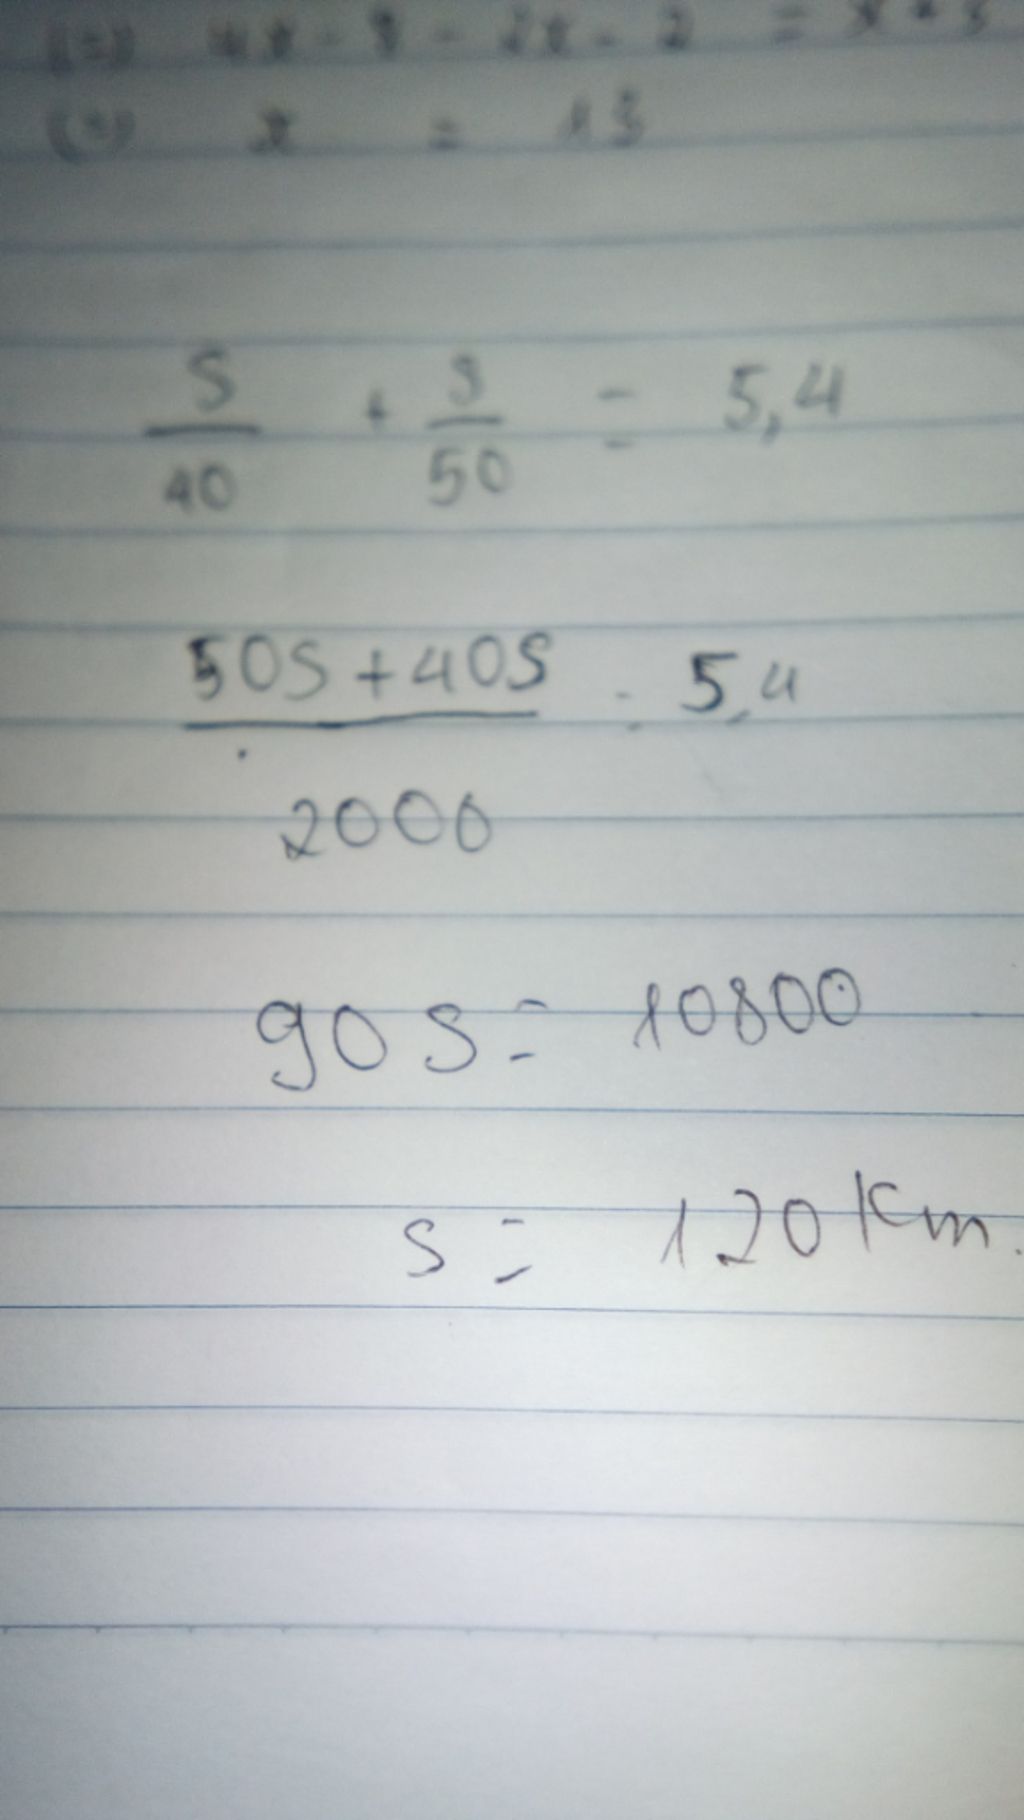 (=) 4x - 8 - 2x - 2 = x + 3
(=) x = 13
S/40 + S/50 = 5,4
50S + 40S / 2000 = 5,4
90 S = 10800
S = 120 Km.